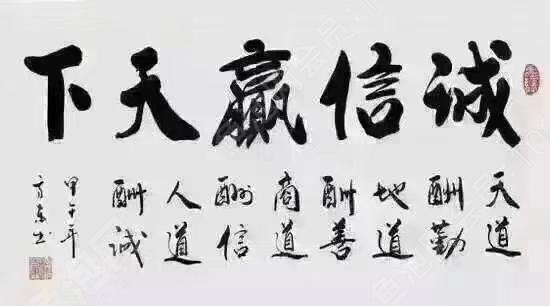 诚信赢天下
天道
酬勤
地道
酬善
商道
酬信
人道
酬诚
甲午年
书